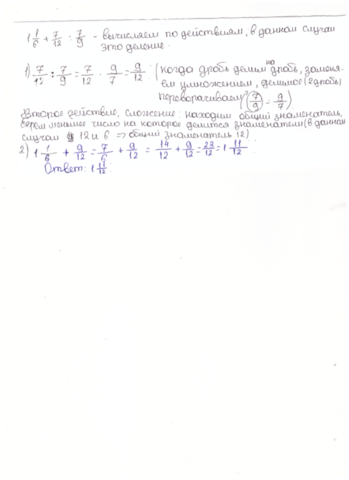 1 1/6 + 7/12 : 7/9 - вычисляем по действиям, в данном случаи
это деление.
1) 7/12 : 7/9 = 7/12 · 9/7 = 9/12 (когда дробь делим на дробь, заменя-
ем умножением, делимое (2 дробь)
переворачиваем (7/9 = 9/7)
Второе действие, сложение: находим общий знаменатель,
берем число на которое делится знаменатели (в данном
случаи 12 и 6 => общий знаменатель 12)
2) 1 1/6 + 9/12 = 7/6 + 9/12 = 14/12 + 9/12 = 23/12 = 1 11/12
Ответ: 1 11/12